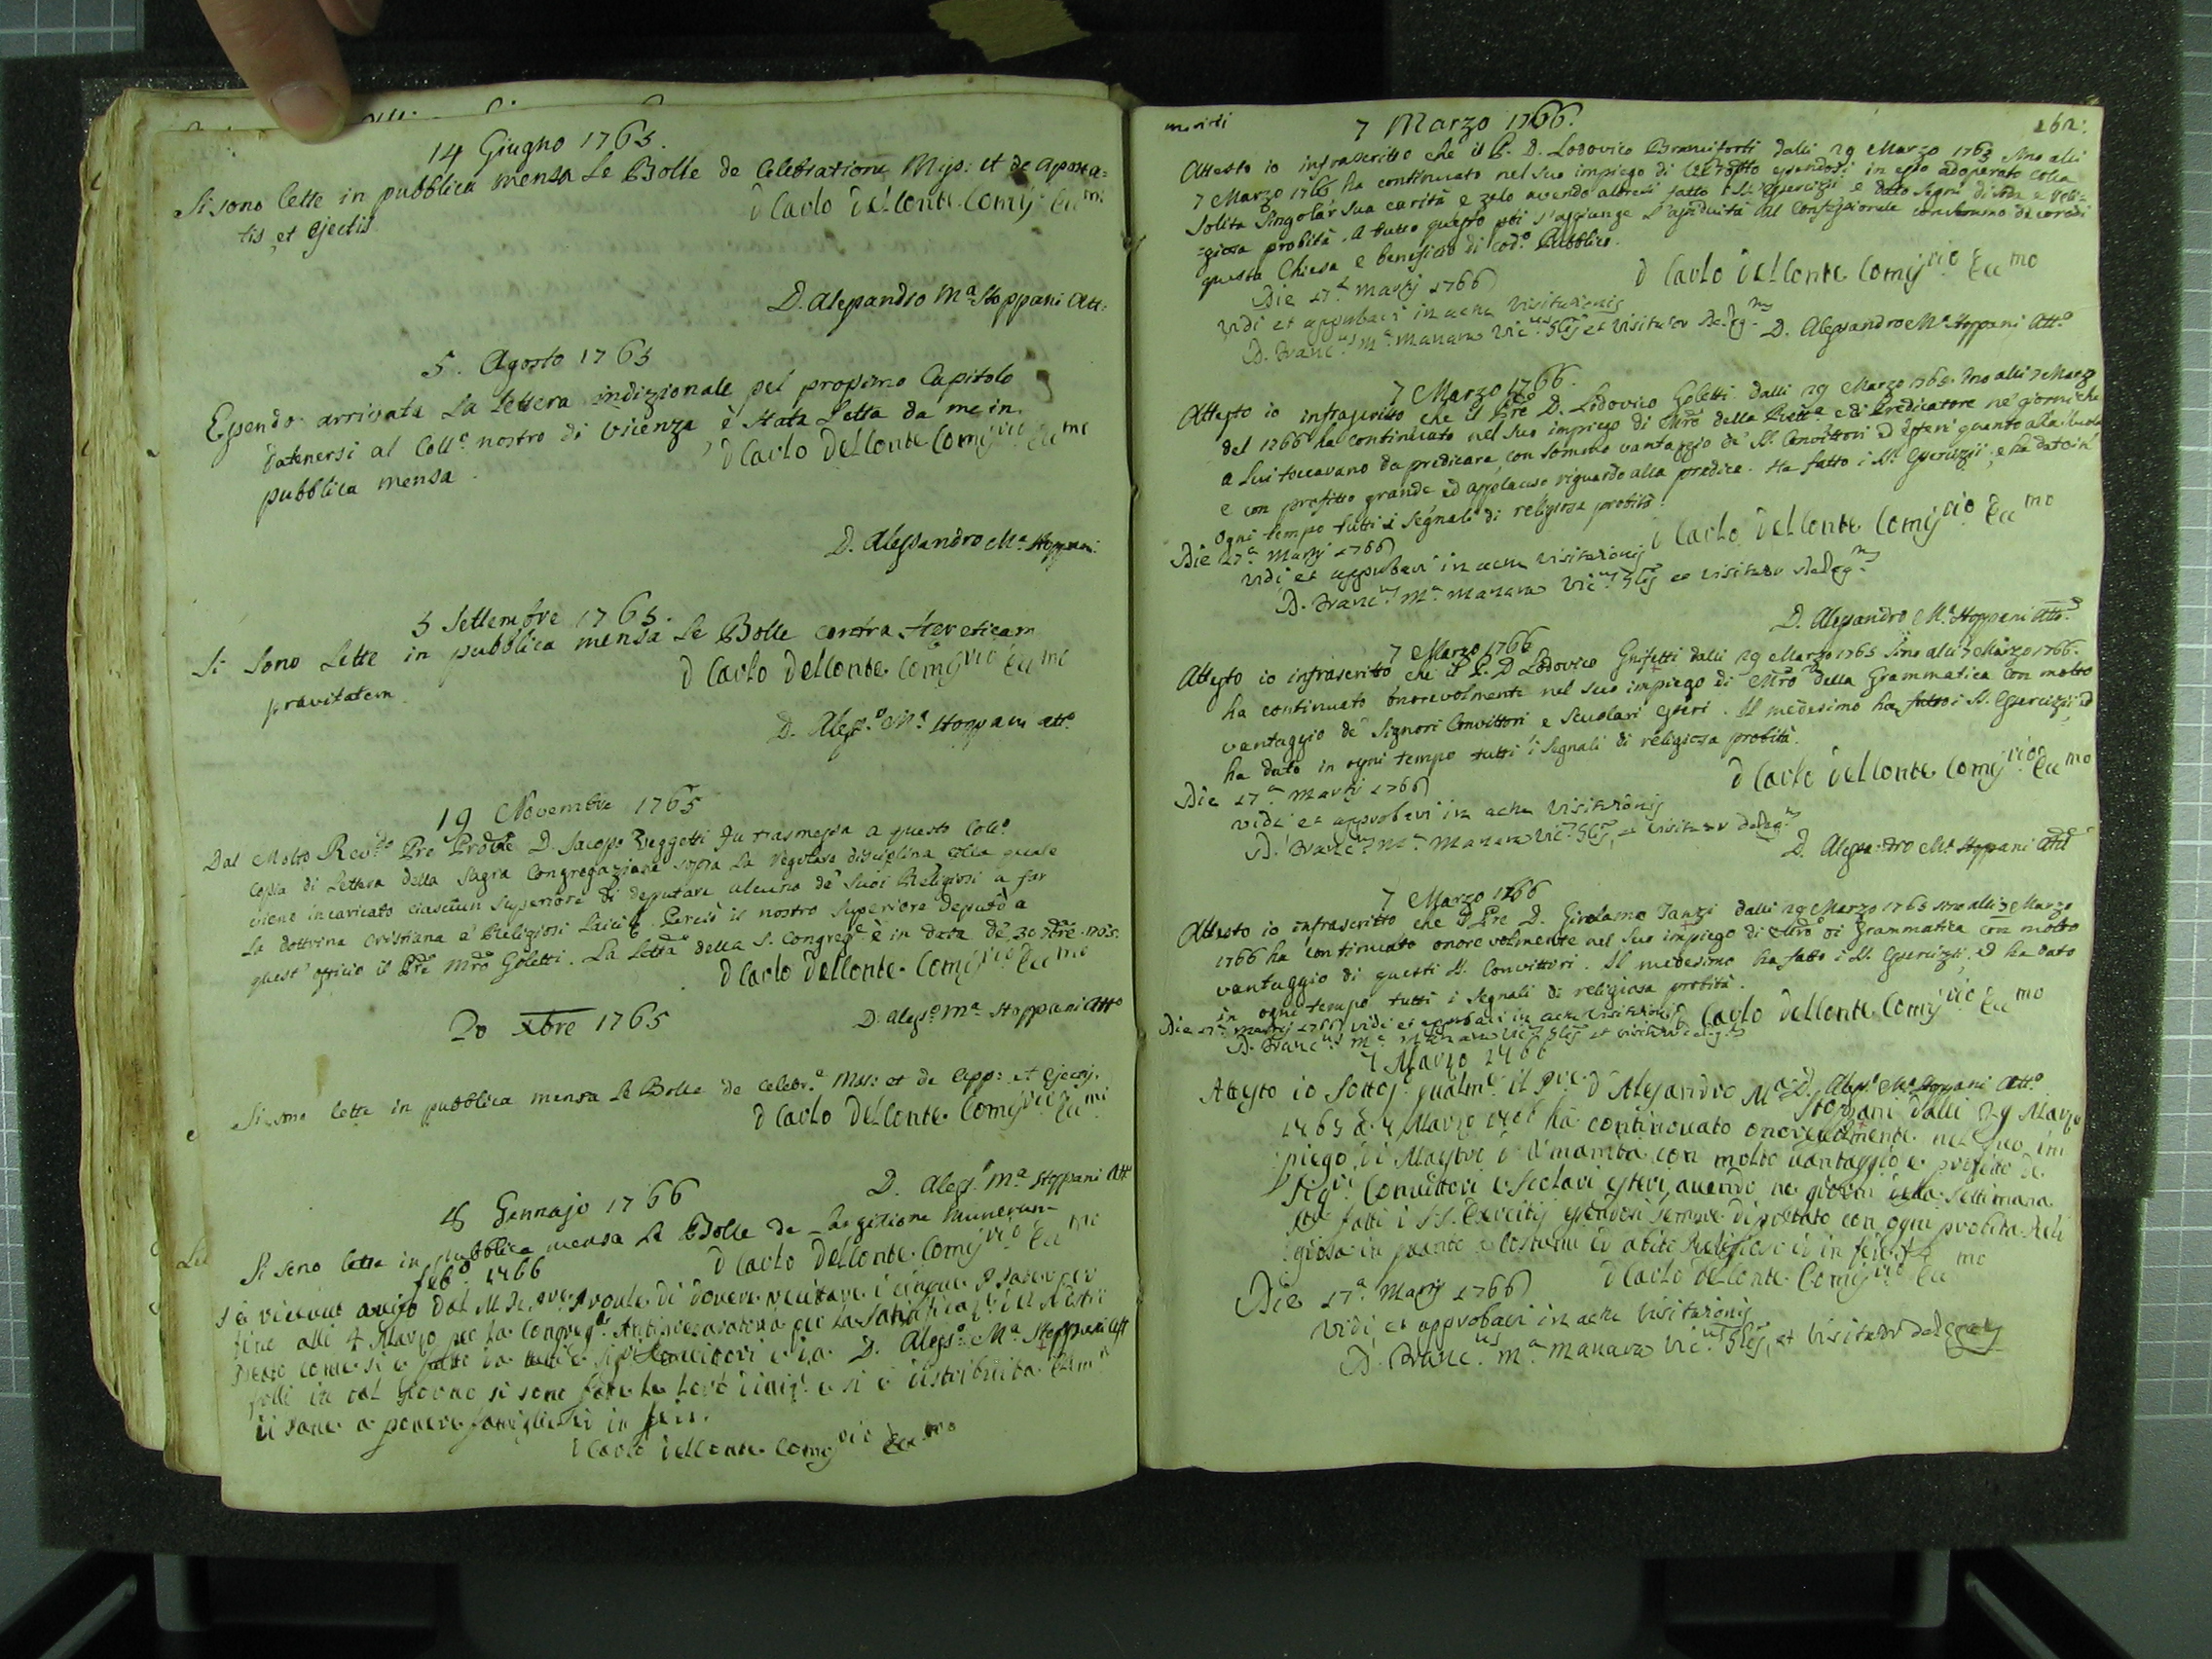 14 Giugno 1765.
Si sono lette in pubblica mensa le Bolle de Celebratione Miss: et de Aposta=
tis, et Ejectis
D Carlo DelConte Comis:rio Eu:mo
D. Alessandro Ma. Stoppani Att:
5. Agosto 1765
Essendo arrivata la lettera indizionale pel prossimo Capitolo
da tenersi al Collo. nostro di Vicenza è stata letta da me in
pubblica mensa.
D Carlo DelConte Comis:rio
D. Alessandro Ma. Stoppani
5 Settembre 1765.
Si sono lette in pubblica mensa le Bolle contra Hereticam
pravitatem
D Carlo DelConte Comis:rio
D. Aless:o Ma. Stoppani atto.
19 Novembre 1765
Dal Molto Rev:do Pre Prõvle D. Jacopo fu trasmessa a questo Collo.
copia di lettera della Sagra Congregazione sopra la regolare disciplina colla quale
viene incaricato ciascun Superiore di deputare alcuno de' suoi Religiosi a far
la dottrina cristiana a' Religiosi Laici. Perciò il nostro Superiore deputò a
quest' officio il Pre Mro Goletti. La Lettã della S. Congreg:e è in data de' 30 1765.
D Carlo DelConte. Comis:rio
D. Aless:o Ma. Stoppani Atto
20 Xbre 1765
Si sono lette in pubblica mensa le Bolle de Celebr.e Miss: et de App: et Ejectis.
D Carlo DelConte Comis:rio
D. Aless:o Ma. Stoppani Atto
Gennajo 1766
Si sono lette in pubblica mensa le Bolle de Largitione Munerum
D Carlo DelConte. Comis:rio
feb:o 1766
Si è ricevuto aviso dal M. R. Pre Provle. di dovere recitare i cinque Pater
fino alli 4 Marzo per la Congreg:e per la
D. Aless:o Ma. Stoppani
in tal giorno si sono e si è distribuita
a povere famiglie in fede.
D Carlo DelConte. Comis:rio
7 Marzo 1766.
162:
Attesto io infrascritto che il P. D. Lodovico Brancitorti dalli 29 Marzo 1765 sino alli
7 Marzo 1766 ha continuato nel suo impiego di essendosi in esso adoperato colla
solita singolar sua carità e zelo avendo altresì fatto i SS. Esercizii e dato segni di soda e reli=
=giosa probità. A tutto questo poi s'aggiunge l'assiduità al Confessionale con sommo decoro di
questa Chiesa e beneficio di cod:o Pubblico.
D Carlo DelConte Comis:rio Eu:mo
Die 17a. Martij 1766
vidi et approbavi in actu Visitationis
D. Franc:us Ma. Manara Vic:us Glis et Visitator Deleg:us
D. Alessandro Ma. Stoppani Atto.
7 Marzo 1766.
Attesto io infrascritto che il Pre D. Lodovico Goletti dalli 29 Marzo 1765 sino alli 7 Marzo
del 1766 ha continuato nel suo impiego di Mro della Rett:a e di Predicatore ne' giorni che
a lui toccavano da predicare, con sommo vantaggio de' SS. Convittori ed Esteri quanto alla scuola
e con profitto grande ed applauso riguardo alla predica. Ha fatto i SS. Esercizii, e ha dato in
ogni tempo tutti i segnali di religiosa probità.
D Carlo DelConte Comis:rio Eu:mo
Die 17a Martij 1766
vidi et approbavi in actu Visitationis
D. Franc:us Ma. Manara Vic:us Glis et Visitator Deleg:us
D. Alessandro Ma. Stoppani Atto.
7 Marzo 1766
Attesto io infrascritto che il P. D. Lodovico Grifetti dalli 29 Marzo 1765 sino alli 7 Marzo 1766.
ha continuato onorevolmente nel suo impiego di Mro della Grammatica con molto
vantaggio de' Signori Convittori e Scuolari esteri. Il medesimo ha fatto i SS. Esercizii, ed
ha dato in ogni tempo tutti i segnali di religiosa probità.
D Carlo DelConte Comis:rio Eu:mo
Die 17a. Martij 1766
vidi et approbavi in actu Visitationis
D. Franc:us Ma. Manara Vic:us Glis, et Visitator Deleg:us
D. Alessandro Ma. Stoppani Atto
7 Marzo 1766
Attesto io infrascritto che il Pre D. Girolamo Tanzi dalli 29 Marzo 1765 sino alli 7 Marzo
1766 ha continuato onorevolmente nel suo impiego di Mro di Grammatica con molto
vantaggio di questi SS. Convittori. Il medesimo ha fatto i SS. Esercizii, ed ha dato
in ogni tempo tutti i segnali di religiosa probità.
D Carlo DelConte Comis:rio Eu:mo
Die 17a. Martij 1766 vidi et approbavi in actu Visitationis
D. Franc:us Ma. Manara Vic:us Glis et Visitator Deleg:us
D. Aless:o Ma. Stoppani Atto.
7 Marzo 1766
Attesto io sottos:o qualm:e il Pre. D Alessandro Ma.
Stoppani dalli 29 Marzo
1765 a 7 Marzo 1766 ha continovato onorevolmente nel suo im
piego di Maestro d'Umanità con molto vantaggio e profitto de
Sig:ri Convittori e Scolari esteri, avendo ne giorni della Settimana
Sta. fatti i SS. Esercitij essendosi sempre diportato con ogni probità Reli
giosa in quanto a costumi ed abiti Religiosi ed in fede
D Carlo DelConte. Comis:rio Eu:mo
Die 17a. Martij 1766
vidi, et approbavi in actu Visitationis
D. Franc:us Ma. Manara Vic:us Glis, et Visitator Delegatus